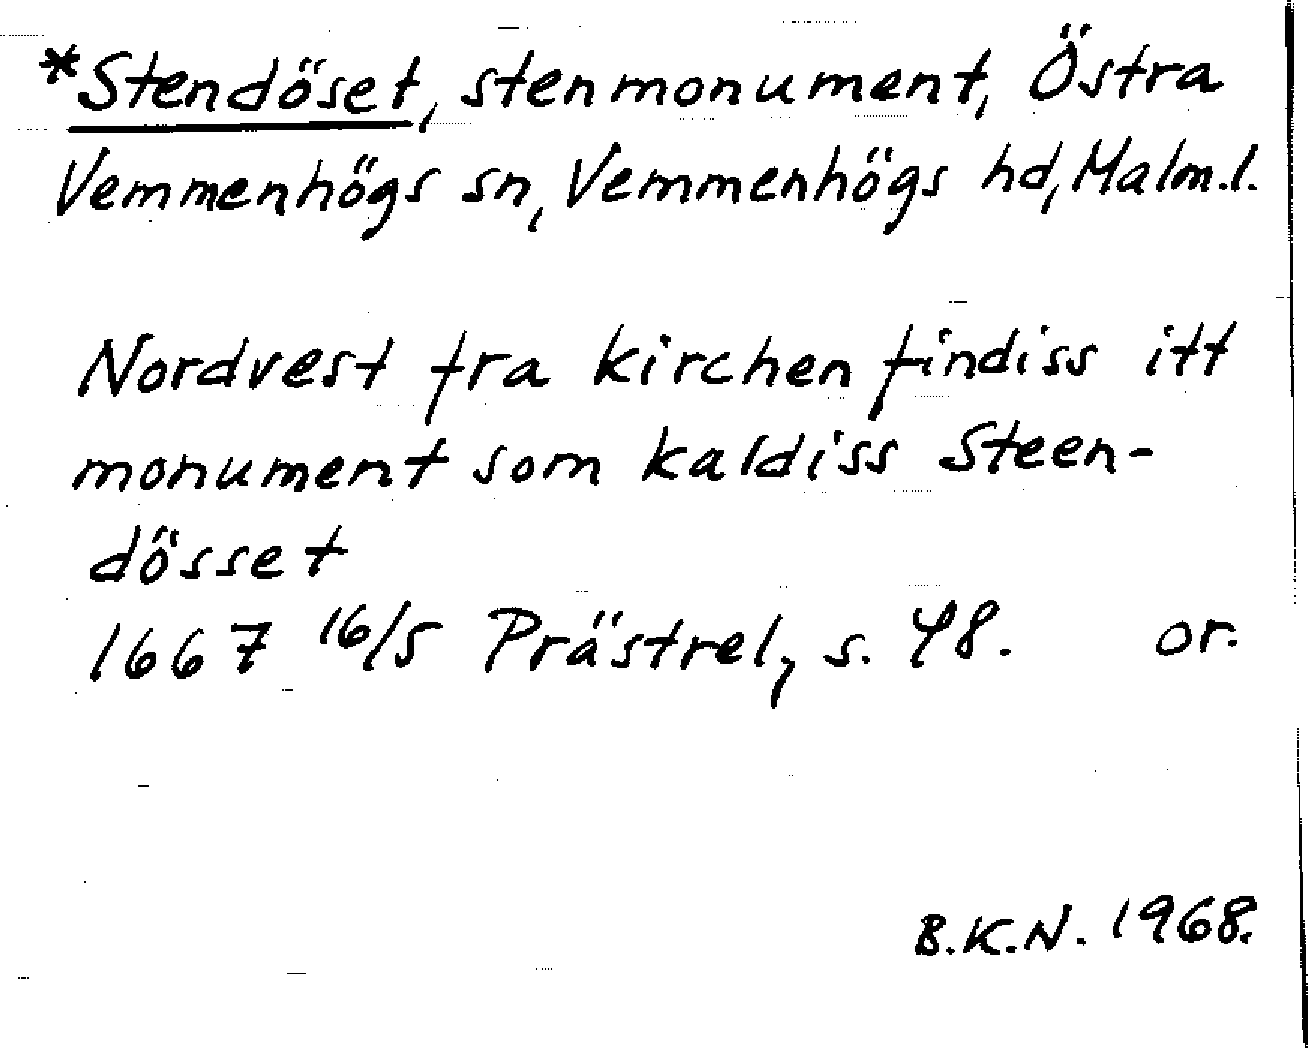 *Stendöset, stenmonument, Östra
Vemmenhögs sn, Vemmenhögs hd, Malm.l.
Nordvest fra kirchen findiss itt
monument som kaldiss Steen-
dösset
1667 16/5 Prästrel, s. 48. or.
B.K.N. 1968.